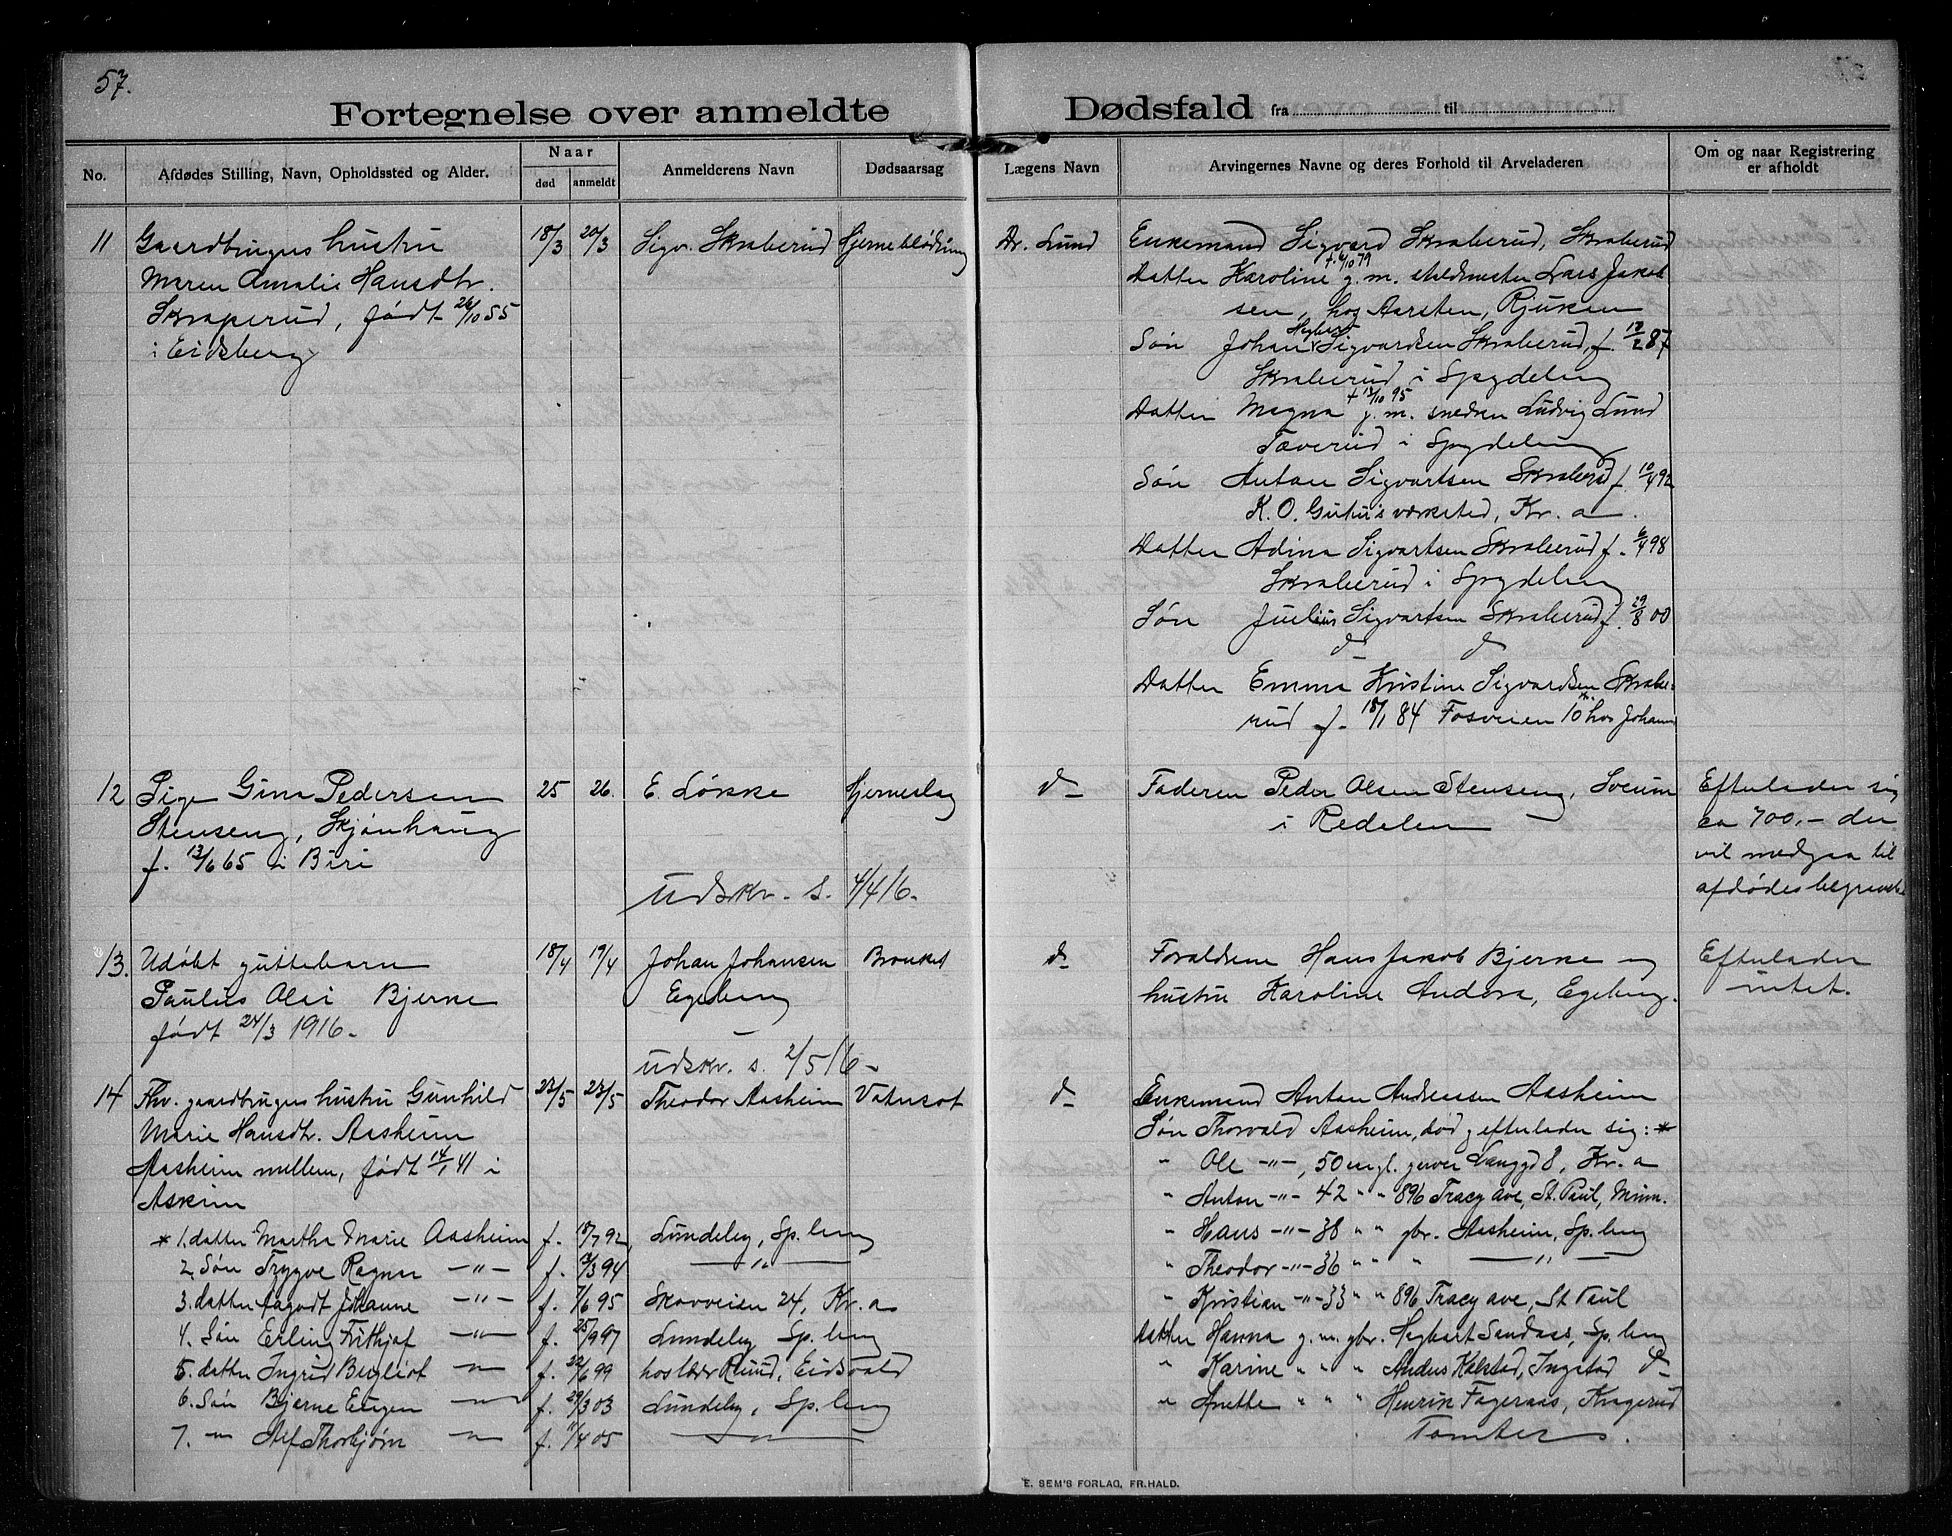 57.
Fortegnelse over anmeldte Dødsfald fra til
No.
Afdødes Stilling, Navn, Opholdssted og Alder.
Naar
død
anmeldt
Anmelderens Navn
Dødsaarsag
Lægens Navn
Arvingernes Navne og deres Forhold til Arveladeren
Om og naar Registrering
er afholdt
11 Gaardbrugers hustru 18/3 20/3 Sigv. Skraberud Hjerneblødning Dr. Lund
Maren Amalie Hansdtr.
Skraperud, født 26/10 55
i Eidsberg
Enkemand Sigvard Skraberud, Skraberud
+ 6/10 79
Datter Karoline g. m. staldmester Lars Jakob
sen, hos Aarsten, Rjukan
Hegbart
Søn Johan Sigvardsen Skraberud, f. 12/2 87
Skraberud i Spydeberg
+ 13/10 95
Datter Magna g. m. snedker Ludvig Lund
Taverud i Spydeberg
Søn Anton Sigvartsen Skraberud f. 10/4 92
K. O. værksted, Kr. a.
Datter Adina Sigvartsen Skraberud f. 6/4 98
Skraberud i Spydeberg
Søn Julius Sigvartsen Skraberud f. 29/8 00
d d
Datter Emma Kristine Sigvardsen Skrabe-
rud f. 18/1 84 Fosveien 10 hos Johann
12 Pige Gina Pedersen 25 26. E. Løkke Hjerneslag d-
Stenseng, Skjønhaug
f. 13/6 65 i Biri
udskr. s. 4/4 16.
Faderen Peder Olsen Stenseng, Sveum
i Redalen
Efterlader sig
ca 700,- der
vil medgaa til
afdødes begravelse
13. Udøbt guttebarn 18/4 19/4 Johan Johansen Bronkit d-
Paulus Olai Bjerke Egeberg
født 24/3 1916.
udskr. s. 2/5 16-
Forældrene Hans Jakob Bjerke og
hustru Karoline Andora, Egeberg.
Efterlader
intet.
14 Fhv. gaardbrugers hustru Gunhild 22/5 23/5 Theodor Aasheim Vatersot d-
Marie Hansdtr. Aasheim
Aasheim mellem, født 14/1 41 i
Askim
* 1. datter Martha Marie Aasheim f. 18/7 92, Lundeby, Sp.berg
2. Søn Trygve Ragnar -"- f. 13/3 94 -"-
3. datter Aagodt Johanne -"- f. 7/6 95 Skovveien 24, Kr. a
4. Søn Erling Frithjof -"- f. 25/9 97 Lundeby, Sp.berg
5. datter Ingrid Bergliot -"- f. 22/6 99 hos lærer Ruud, Eidsvold
6. Søn Bjerne Eugen -"- f. 29/3 03 Lundeby, Sp.berg
7. -"- Alf Thorbjørn -"- f. 11/4 05 -"-
Enkemand Anton Andreassen Aasheim
Søn Thorvald Aasheim, død, efterlader sig: *
" Ole -"-, 50 Langgd 8, Kr. a
" Anton -"- 42 " " 896 Tracy ave, St. Paul, Minn.
" Hans -"- 38 " " gbr. Aasheim, Sp.berg
" Theodor -"- 36 " " " -"-
" Kristian -"- 33 " " 896 Tracy ave, St Paul
datter Hanna g. m. gbr. Hegbart Sandaas, Sp.berg
" Karine " " " Anders Kalstad, Ingstad d-
" Anette " " " Henrik Fageraas, Knagerud
Tomter.
E. SEM'S FORLAG, FR.HALD.